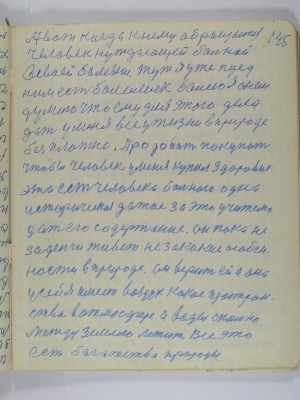 145
А вот когда к нему обращается
человек нуждающей больной
своей болезни. тут я уже пред
ним есть
думаю что ему для этого дела
дать у меня все у жизни в природе
бесплатно. Продовать покупать
чтобы человек у меня купил здоровье
это есть человека больного одна
историческая за это учителю
дать его содержание. он пока не
за деньги живет не законно особен
ности в природе. он верит ей а она
у себя имеет воздух какое простран
ства в атмосфере а воды сколько
между землею лежит. Все это
есть багатства природы